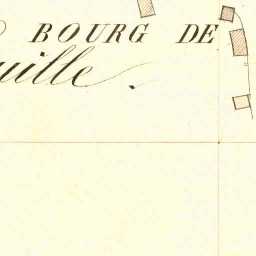 BOURG DE
uille.